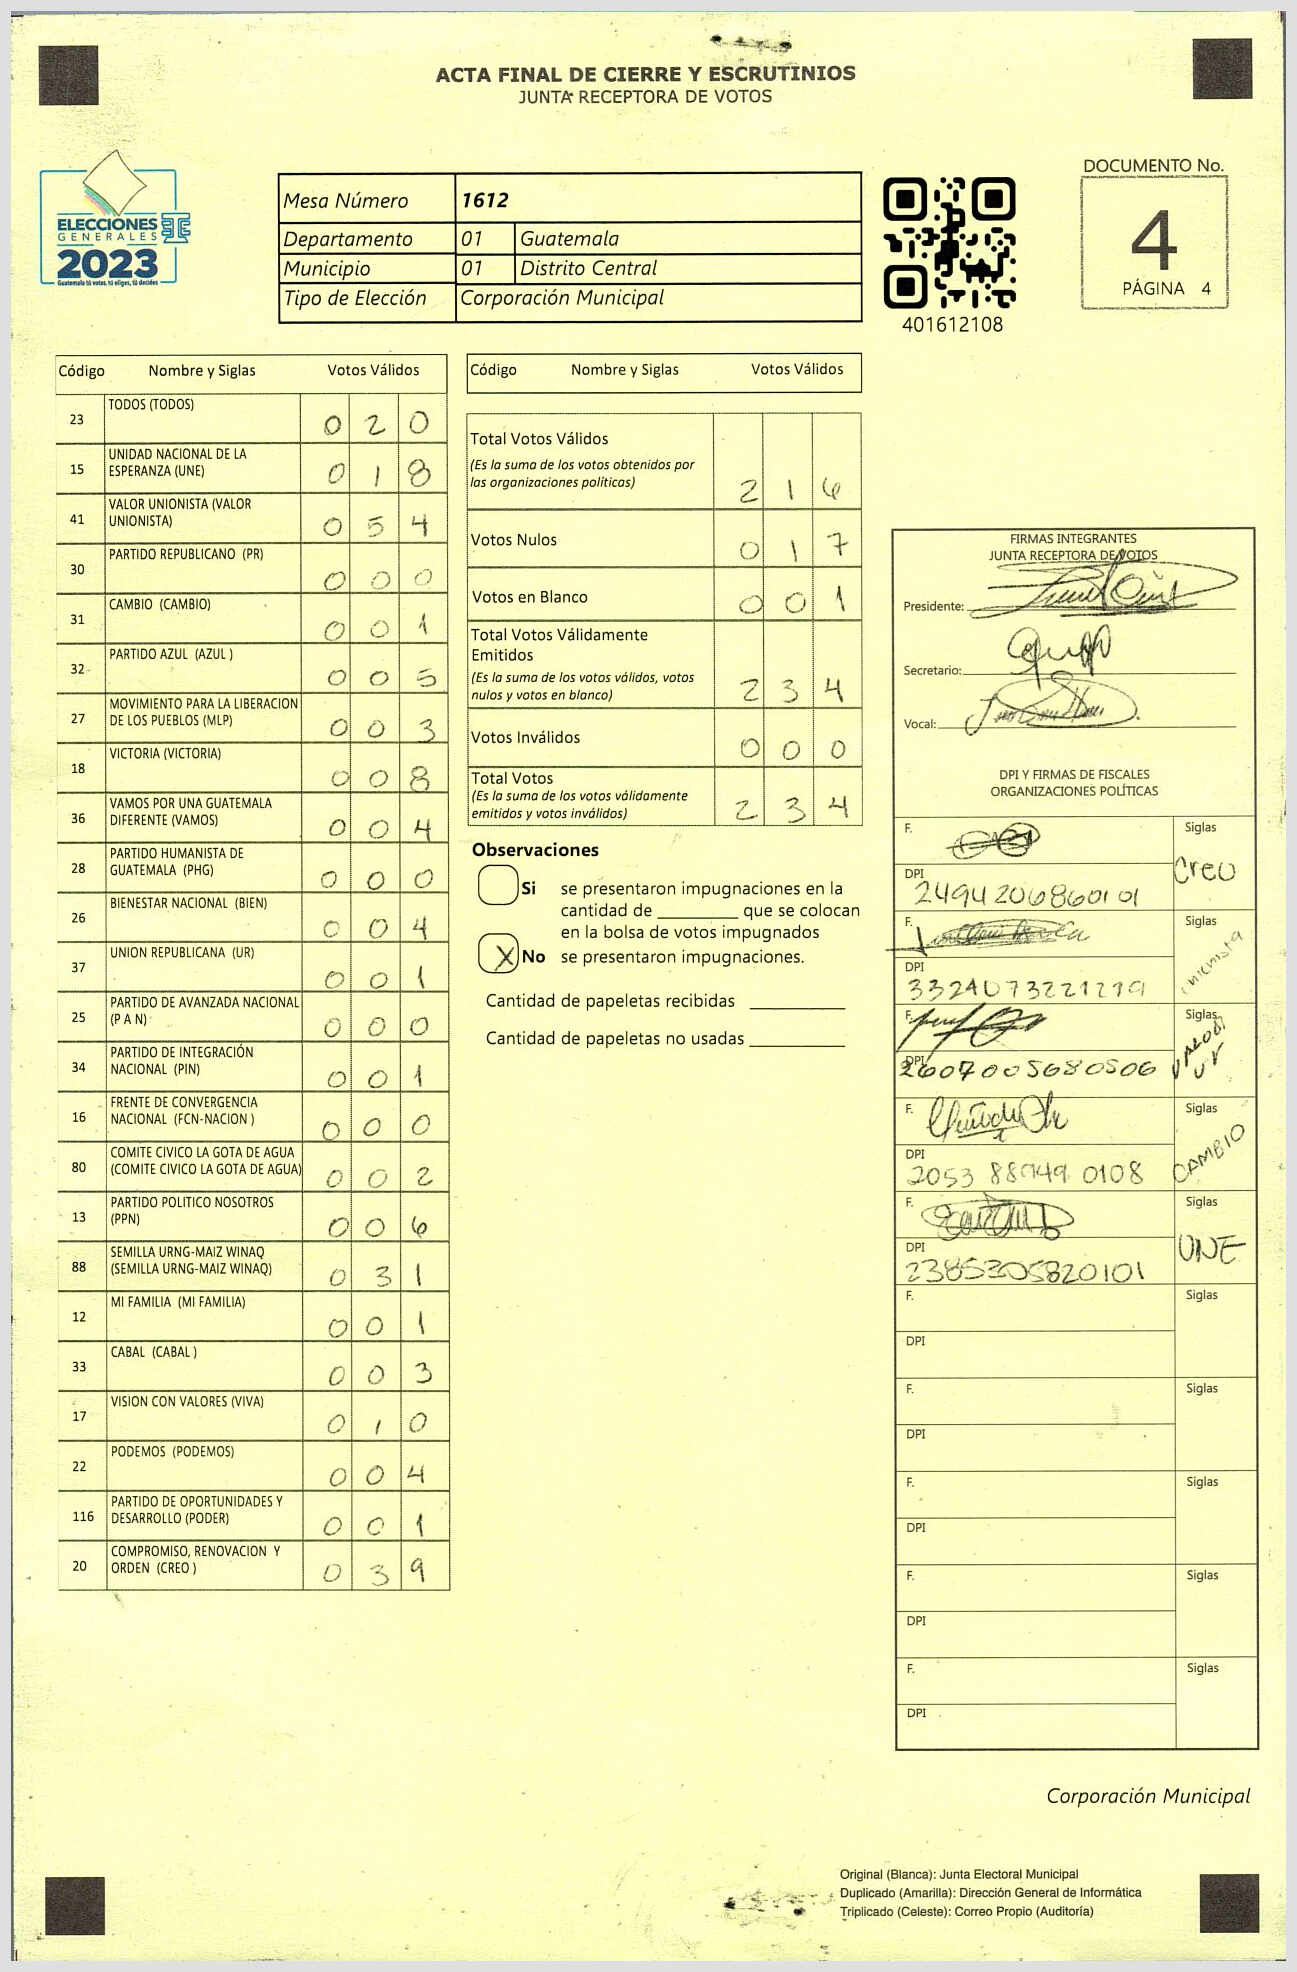 ACTA FINAL DE CIERRE Y ESCRUTINIOS
JUNTA RECEPTORA DE VOTOS
ELECCIONES
GENERALES
2023
Guatemala tú votas, tú eliges, tú decides
Mesa Número 1612
Departamento 01 Guatemala
Municipio 01 Distrito Central
Tipo de Elección Corporación Municipal
401612108
DOCUMENTO No.
4
PÁGINA 4
Código Nombre y Siglas Votos Válidos
23 TODOS (TODOS) 0 2 0
15 UNIDAD NACIONAL DE LA
ESPERANZA (UNE) 0 1 8
41 VALOR UNIONISTA (VALOR
UNIONISTA) 0 5 4
30 PARTIDO REPUBLICANO (PR) 0 0 0
31 CAMBIO (CAMBIO) 0 0 1
32 PARTIDO AZUL (AZUL ) 0 0 5
27 MOVIMIENTO PARA LA LIBERACION
DE LOS PUEBLOS (MLP) 0 0 3
18 VICTORIA (VICTORIA) 0 0 8
36 VAMOS POR UNA GUATEMALA
DIFERENTE (VAMOS) 0 0 4
28 PARTIDO HUMANISTA DE
GUATEMALA (PHG) 0 0 0
26 BIENESTAR NACIONAL (BIEN) 0 0 4
37 UNION REPUBLICANA (UR) 0 0 1
25 PARTIDO DE AVANZADA NACIONAL
(P A N) 0 0 0
34 PARTIDO DE INTEGRACIÓN
NACIONAL (PIN) 0 0 1
16 FRENTE DE CONVERGENCIA
NACIONAL (FCN-NACION ) 0 0 0
80 COMITE CIVICO LA GOTA DE AGUA
(COMITE CIVICO LA GOTA DE AGUA) 0 0 2
13 PARTIDO POLITICO NOSOTROS
(PPN) 0 0 6
88 SEMILLA URNG-MAIZ WINAQ
(SEMILLA URNG-MAIZ WINAQ) 0 3 1
12 MI FAMILIA (MI FAMILIA) 0 0 1
33 CABAL (CABAL ) 0 0 3
17 VISION CON VALORES (VIVA) 0 1 0
22 PODEMOS (PODEMOS) 0 0 4
116 PARTIDO DE OPORTUNIDADES Y
DESARROLLO (PODER) 0 0 1
20 COMPROMISO, RENOVACION Y
ORDEN (CREO ) 0 3 9
Código Nombre y Siglas Votos Válidos
Total Votos Válidos
(Es la suma de los votos obtenidos por
las organizaciones políticas) 2 1 6
Votos Nulos 0 1 7
Votos en Blanco 0 0 1
Total Votos Válidamente
Emitidos
(Es la suma de los votos válidos, votos
nulos y votos en blanco) 2 3 4
Votos Inválidos 0 0 0
Total Votos
(Es la suma de los votos válidamente
emitidos y votos inválidos) 2 3 4
Observaciones
Si se presentaron impugnaciones en la
cantidad de ________ que se colocan
en la bolsa de votos impugnados
X No se presentaron impugnaciones.
Cantidad de papeletas recibidas ________
Cantidad de papeletas no usadas ________
FIRMAS INTEGRANTES
JUNTA RECEPTORA DE VOTOS
Presidente:
Secretario:
Vocal:
DPI Y FIRMAS DE FISCALES
ORGANIZACIONES POLÍTICAS
F. Siglas
Creo
DPI
2494206860101
F. Siglas
DPI
3324073221219
F. Siglas
DPI
2607005680506
F. Siglas
CAMBIO
DPI
2053 88949 0108
F. Siglas
UNE
DPI
2385305820101
F. Siglas
DPI
F. Siglas
DPI
F. Siglas
DPI
F. Siglas
DPI
F. Siglas
DPI
Corporación Municipal
Original (Blanca): Junta Electoral Municipal
Duplicado (Amarilla): Dirección General de Informática
Triplicado (Celeste): Correo Propio (Auditoría)